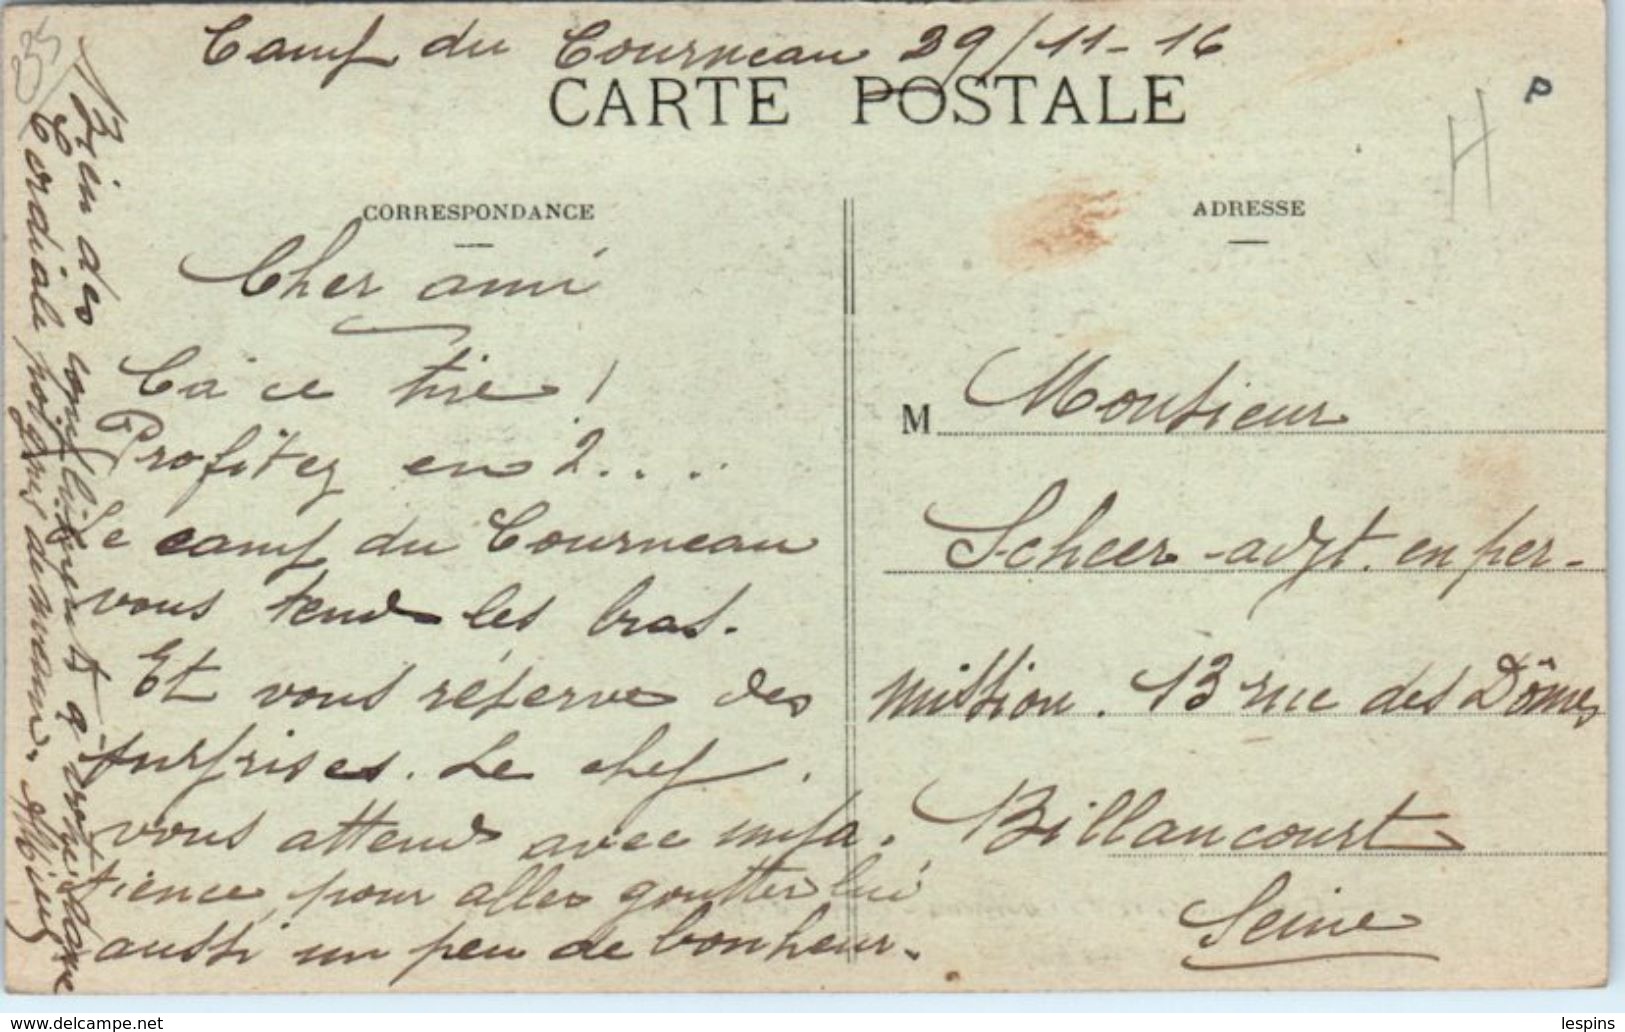 Camp du Courneau 29/11-16
CARTE POSTALE
P
H
CORRESPONDANCE
ADRESSE
Cher ami
Ca ce tire !
Profitez en 2....
Le camp du Courneau
vous tend les bras.
Et vous réserve des
surprises. Le chef
vous attend avec impa-
tience, pour aller goutter lui
aussi un peu de bonheur.
Bien des
Cordiale poignée de main.
M Monsieur
Scheer - adjt. en per-
mission. 13 rue des Dômes
Billancourt
Seine
lespins
delcampe.net